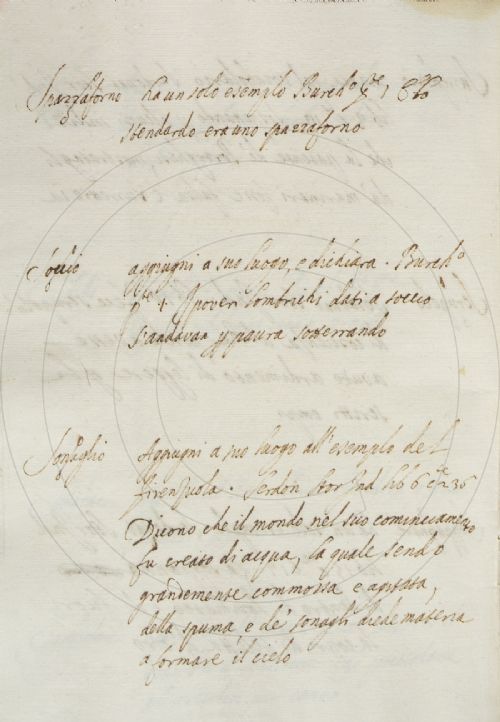 Spazzaforno ha un solo esempio Burch.º
stendardo era uno spazzaforno
Soccio aggiugni a suo luogo, e dichiara. Burch.º
I poveri lombrichi dati a soccio
S'andavan p paura sotterrando
Sonaglio Aggiugni a suo luogo all'esempio del
firenzuola. Serdon. stor. Ind. lib. 6 c.te 236
Dicono che il mondo nel suo cominciamento
fu creato di acqua, la quale sendo
grandemente commossa e agitata,
della spuma, e de' sonagli diede materia
a formare il cielo